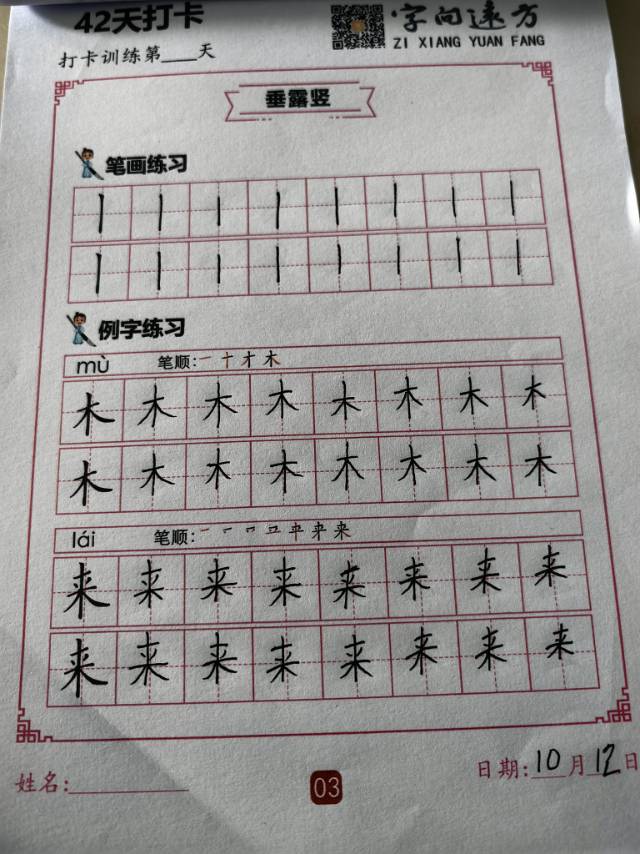 42天打卡
字向远方
ZI XIANG YUAN FANG
打卡训练第___天
垂露竖
笔画练习
丨 丨 丨 丨 丨 丨 丨 丨
丨 丨 丨 丨 丨 丨 丨 丨
例字练习
mù 笔顺: 一 十 才 木
木 木 木 木 木 木 木 木
木 木 木 木 木 木 木 木
lái 笔顺:
来 来 来 来 来 来 来 来
来 来 来 来 来 来 来 来
姓名:
03
日期: 10 月 12 日